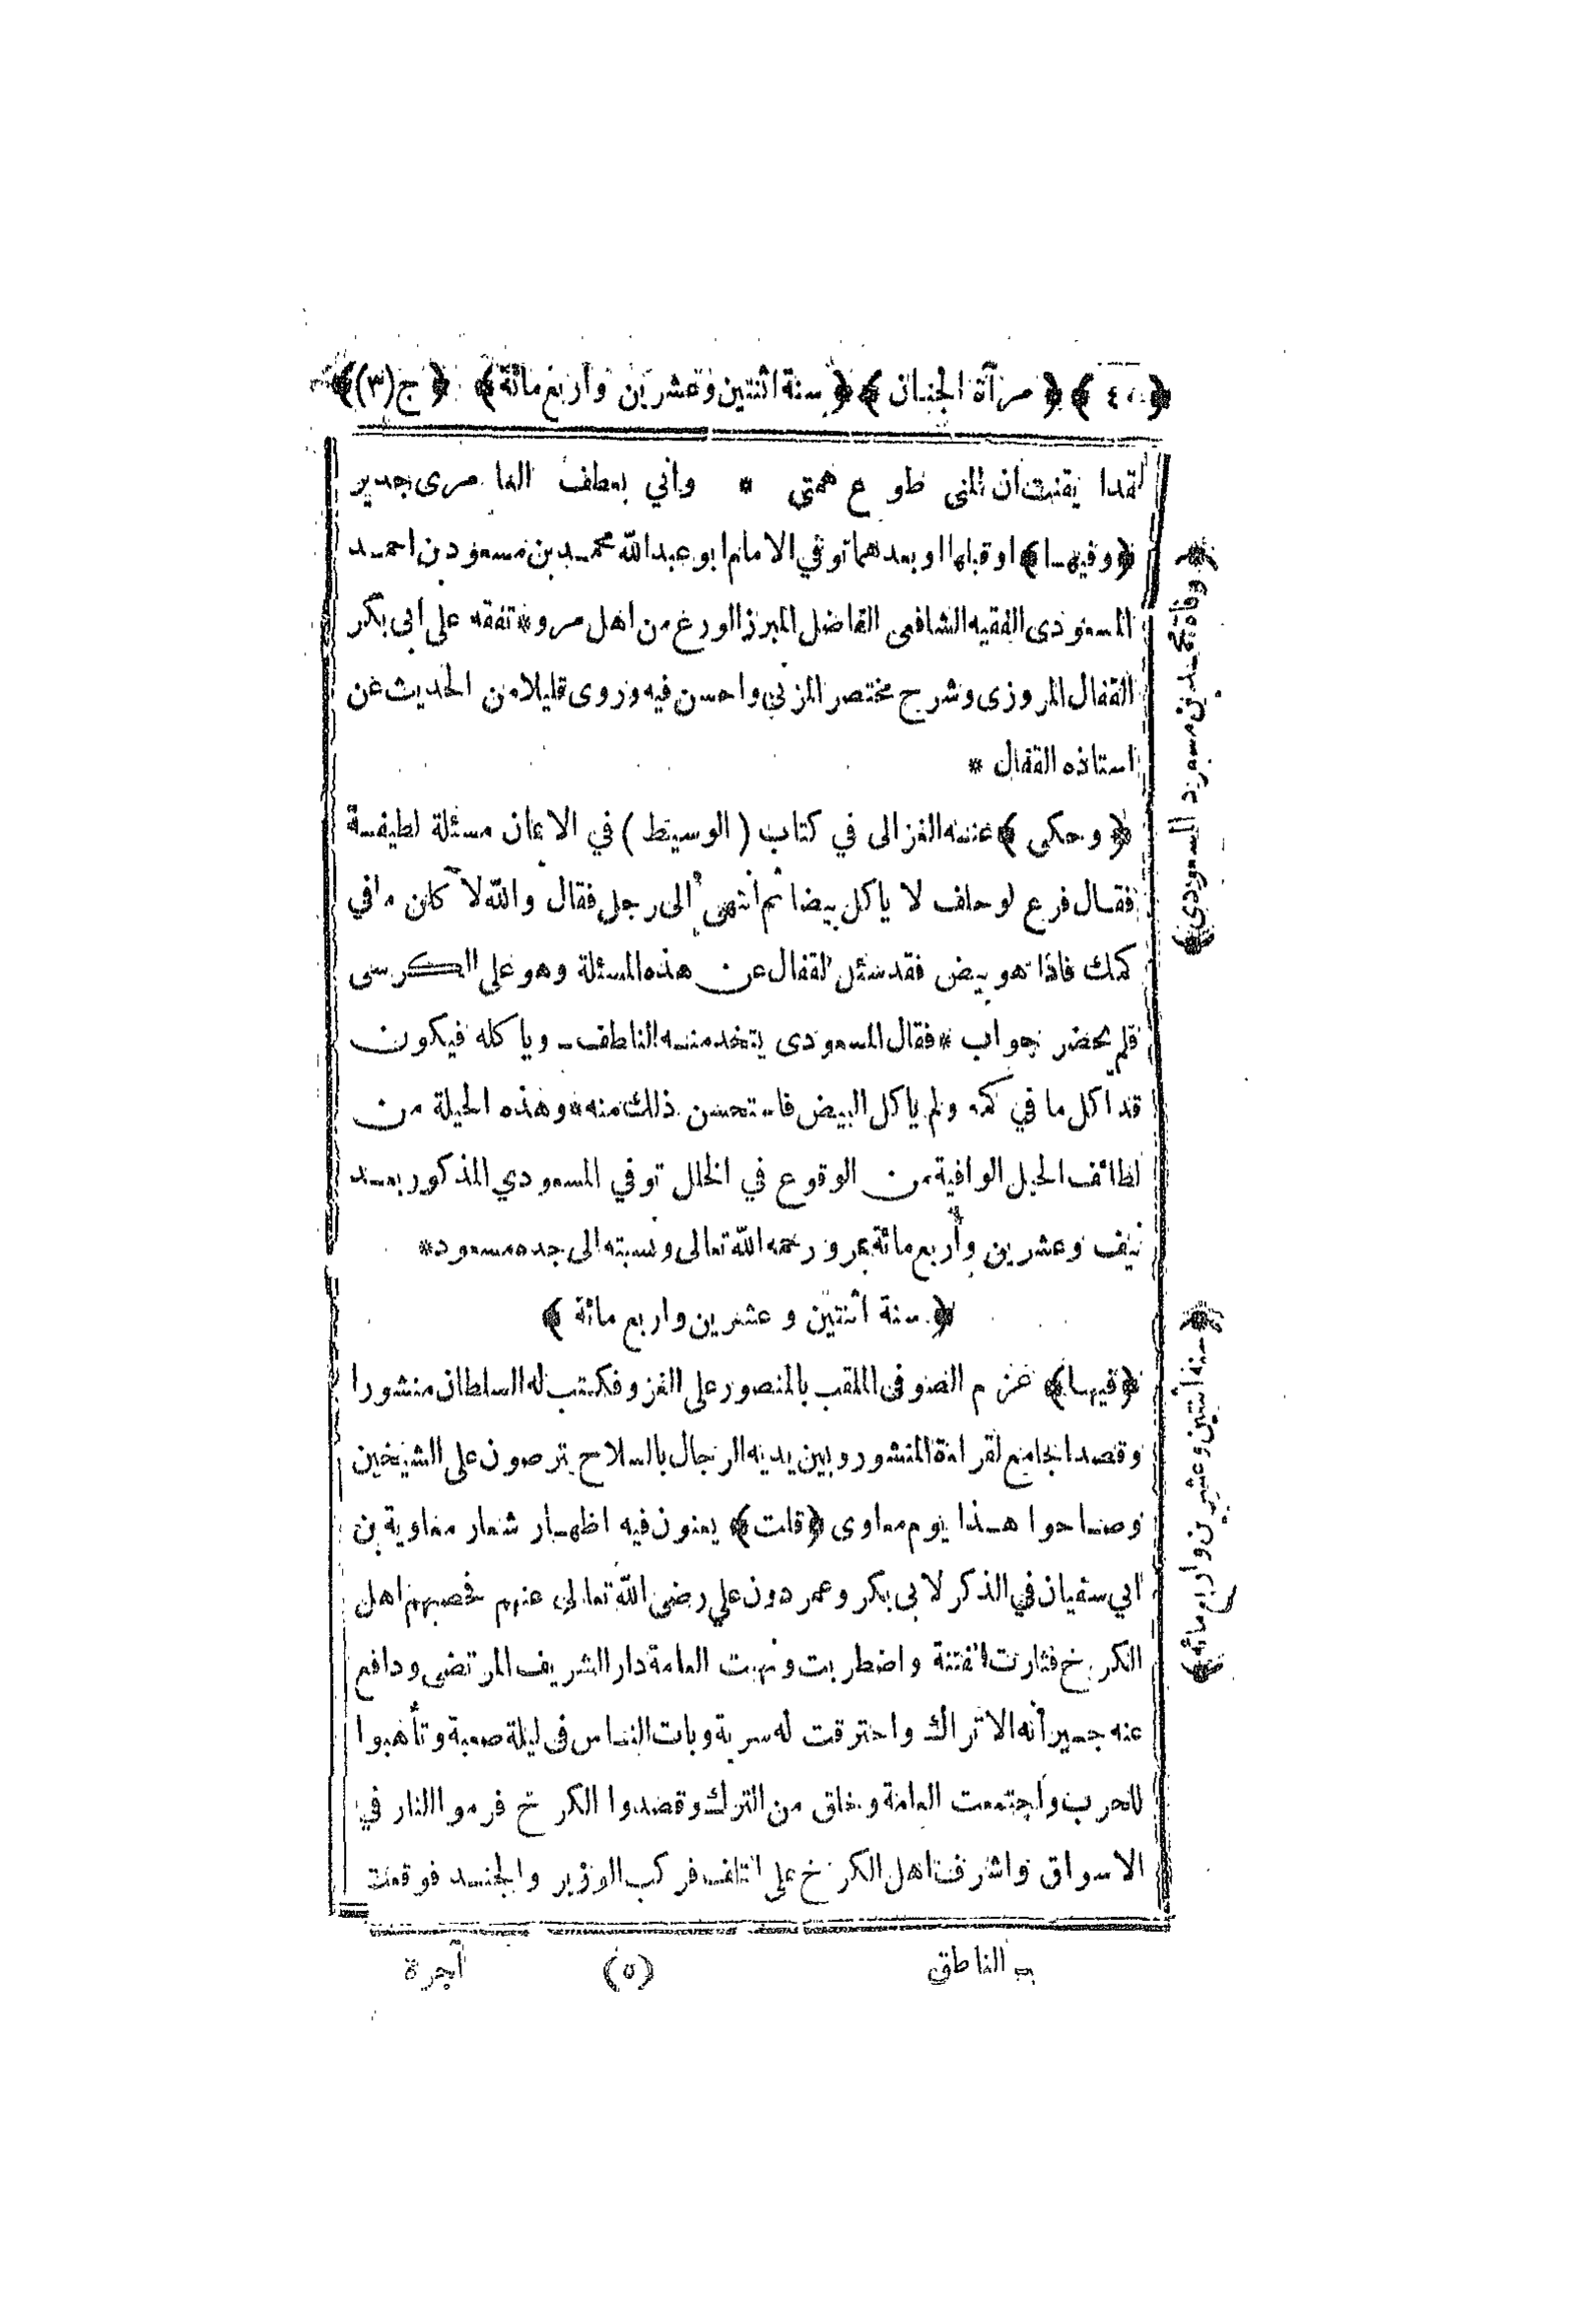 ﴿٤٠﴾ ﴿مرآة الجنان﴾ ﴿سنة اثنتين وعشرين واربع مائة﴾ ﴿ج(٣)﴾
لقد ايقنت ان المنى طوع همتي * واني بعطف جدير
﴿وفيها﴾ او قبلها او بعدهما توفي الامام ابو عبدالله محمد بن مسعود بن احمد
المسعودى الفقيه الشافعى الفاضل المبرز الورع من اهل مرو * تفقه على ابى بكر
القفال المروزى وشرح مختصر المزني واحسن فيه وروى قليلا من الحديث عن
استاذه القفال *
﴿وحكى﴾ عنه الغزالى في كتاب (الوسيط) في الايمان مسئلة لطيفة
فقال فرع لو حلف لا ياكل بيضا ثم انتهى الى رجل فقال والله لآكلن ما في
كمك فاذا هو بيض فقد سئل القفال عن هذه المسئلة وهو على الكرسى
فلم يحضر جواب * فقال المسعودى يتخذ منه الناطف وياكله فيكون
قد اكل ما في كمه ولم ياكل البيض فاستحسن ذلك منه * وهذه الحيلة من
لطائف الحيل الوافية من الوقوع في الخلل توفي المسعودي المذكور بعد
نيف وعشرين وأربع مائة بمرو رحمه الله تعالى ونسبته الى جده مسعود *
﴿سنة اثنتين وعشرين واربع مائة﴾
﴿فيها﴾ عزم الصوفى الملقب بالمنصور على الغزو فكتب له السلطان منشورا
وقصد الجامع لقراءة المنشور وبين يديه الرجال بالسلاح يترضون على الشيخين
وصاحوا هذا يوم معاوى ﴿قلت﴾ يعنون فيه اظهار شعار معاوية بن
ابي سفيان في الذكر لابى بكر وعمر دون علي رضى الله تعالى عنهم فحصبهم اهل
الكرخ فثارت الفتنة واضطربت ونهبت العامة دار الشريف المرتضى ودافع
عنه جيرانه الاتراك واحترقت له سرية وبات الناس فى ليلة صعبة وتأهبوا
للحرب واجتمعت العامة وخلق من الترك وقصدوا الكرخ فرموا النار في
الاسواق واشرف اهل الكرخ على التلف فركب الوزير والجند فوقعت
الناطق (٥) آجرة
﴿وفاة محمد بن مسعود المسعودى﴾
﴿سنة اثنتين وعشرين واربع مائة﴾